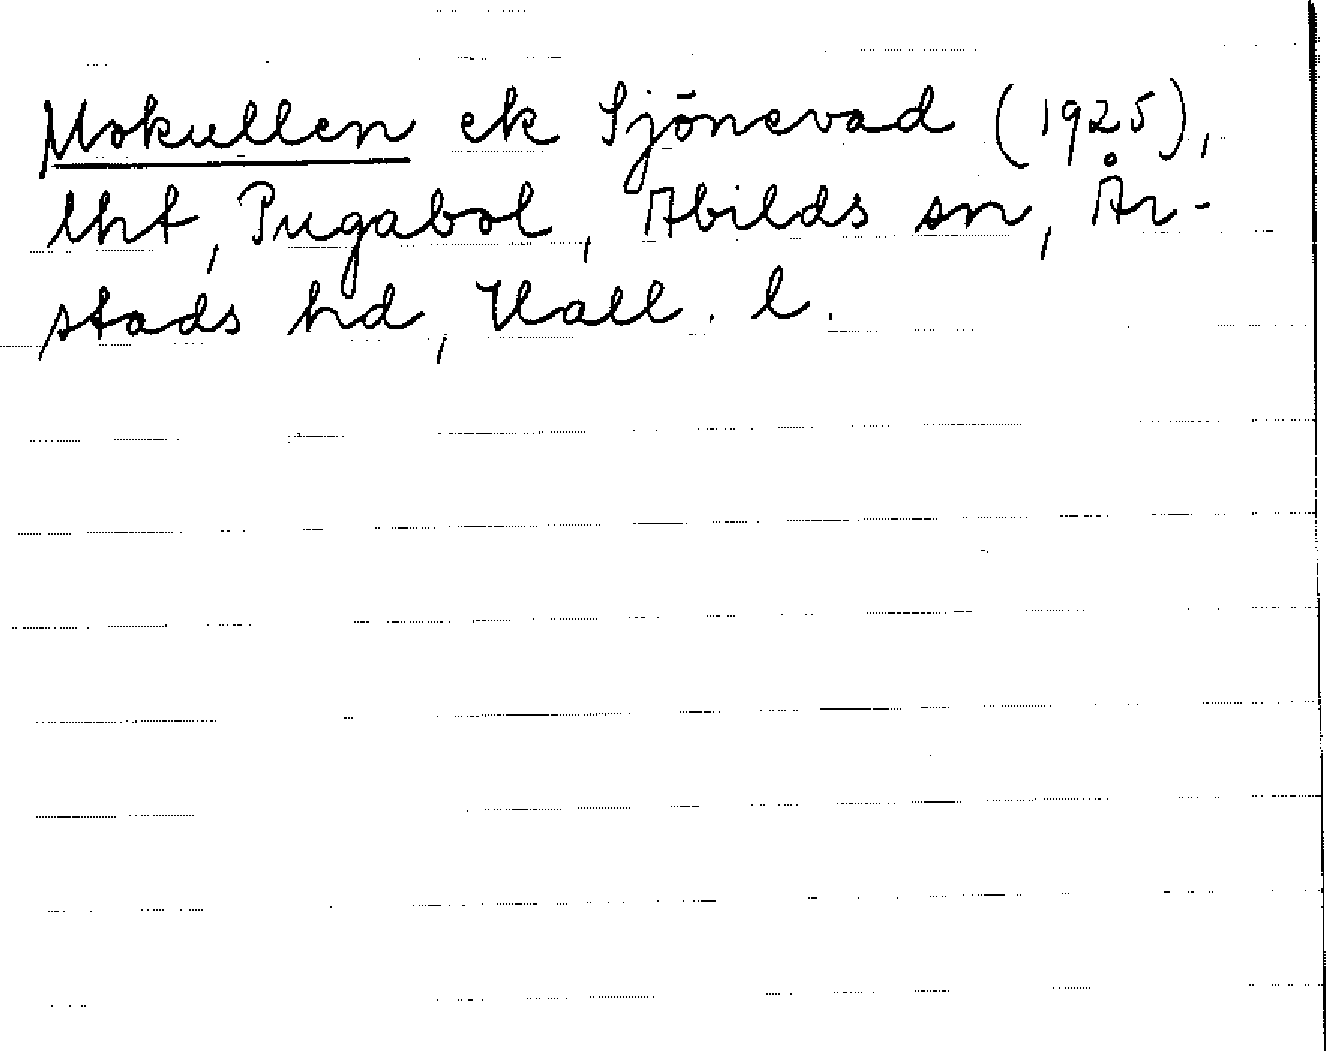 Mokullen ek Sjönevad (1925),
lht, Pugabol, Abilds sn, År-
stads hd, Hall. l.